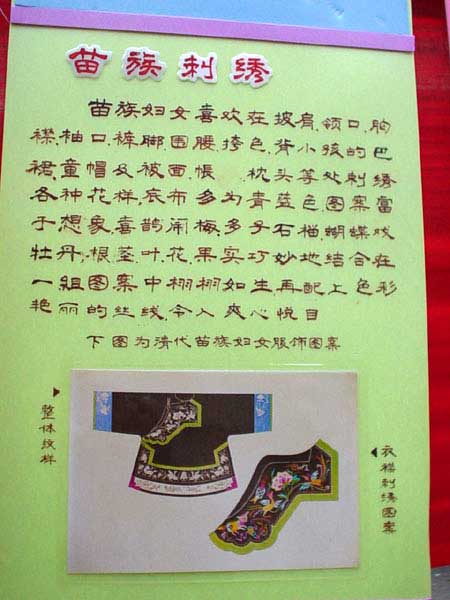 苗族刺绣
苗族妇女喜欢在披肩、领口、胸
襟、袖口、裤脚、围腰、挎包、背小孩的巴
裙、童帽及被面、帐、枕头等处刺绣
各种花样。底布多为青蓝色，图案富
于想象，喜鹊闹梅、多子石榴、蝴蝶戏
牡丹，根、茎、叶、花、果实巧妙地结合在
一组图案中栩栩如生，再配上色彩
艳丽的丝线，令人爽心悦目
下图为清代苗族妇女服饰图案
整体纹样
衣襟刺绣图案